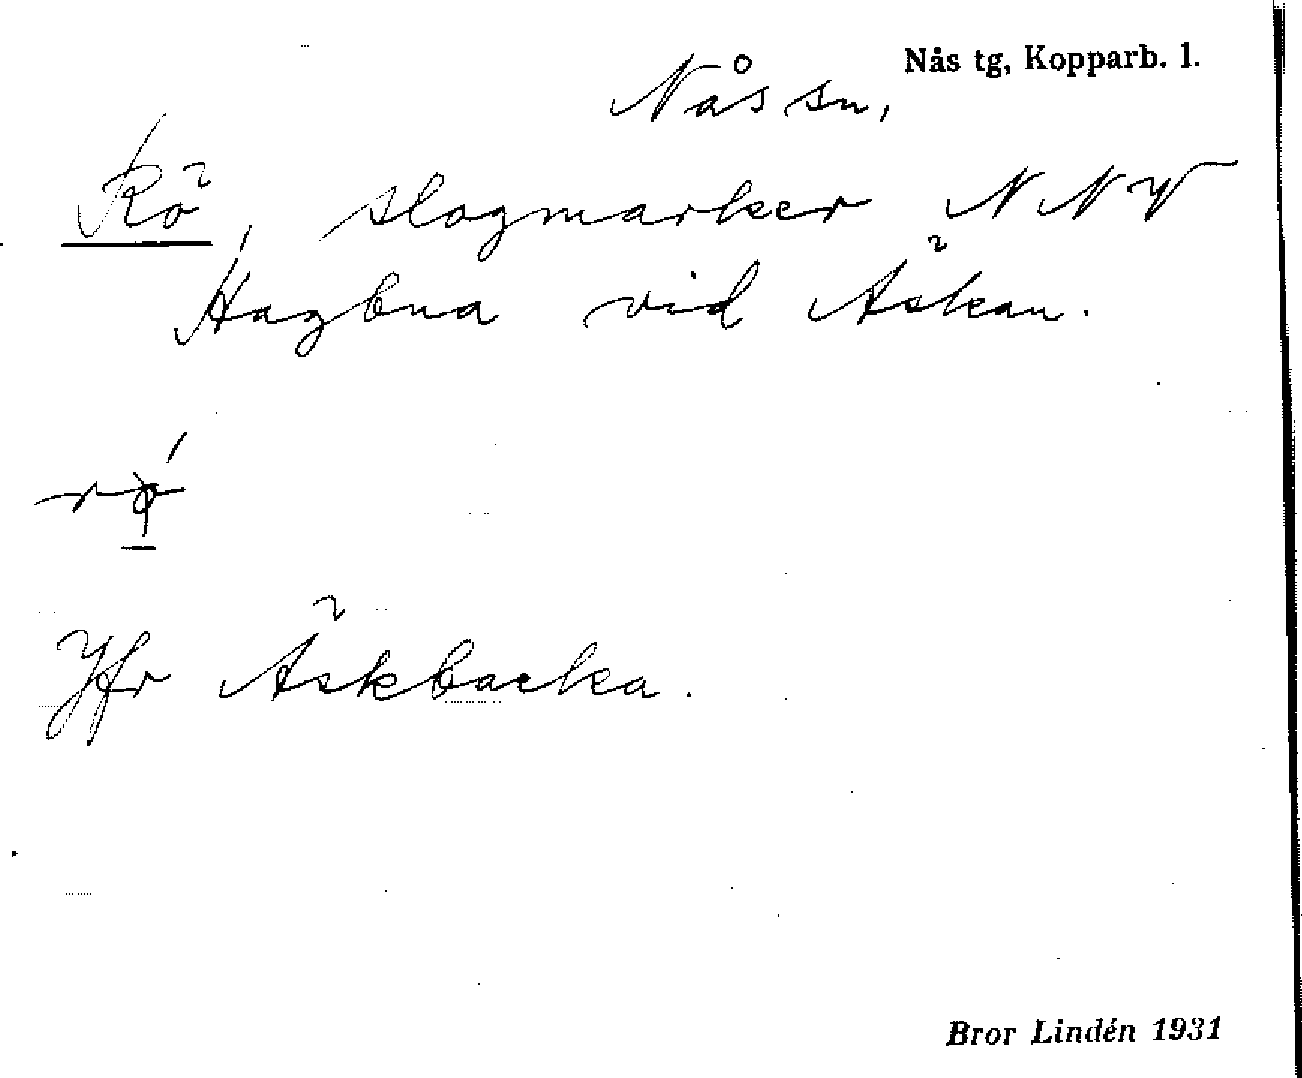 Nås tg, Kopparb. l.
Nås sn,
Rö, slogmarker NNV
Hagbna vid Äskan.
Jfr Äskbacka.
Bror Lindén 1931